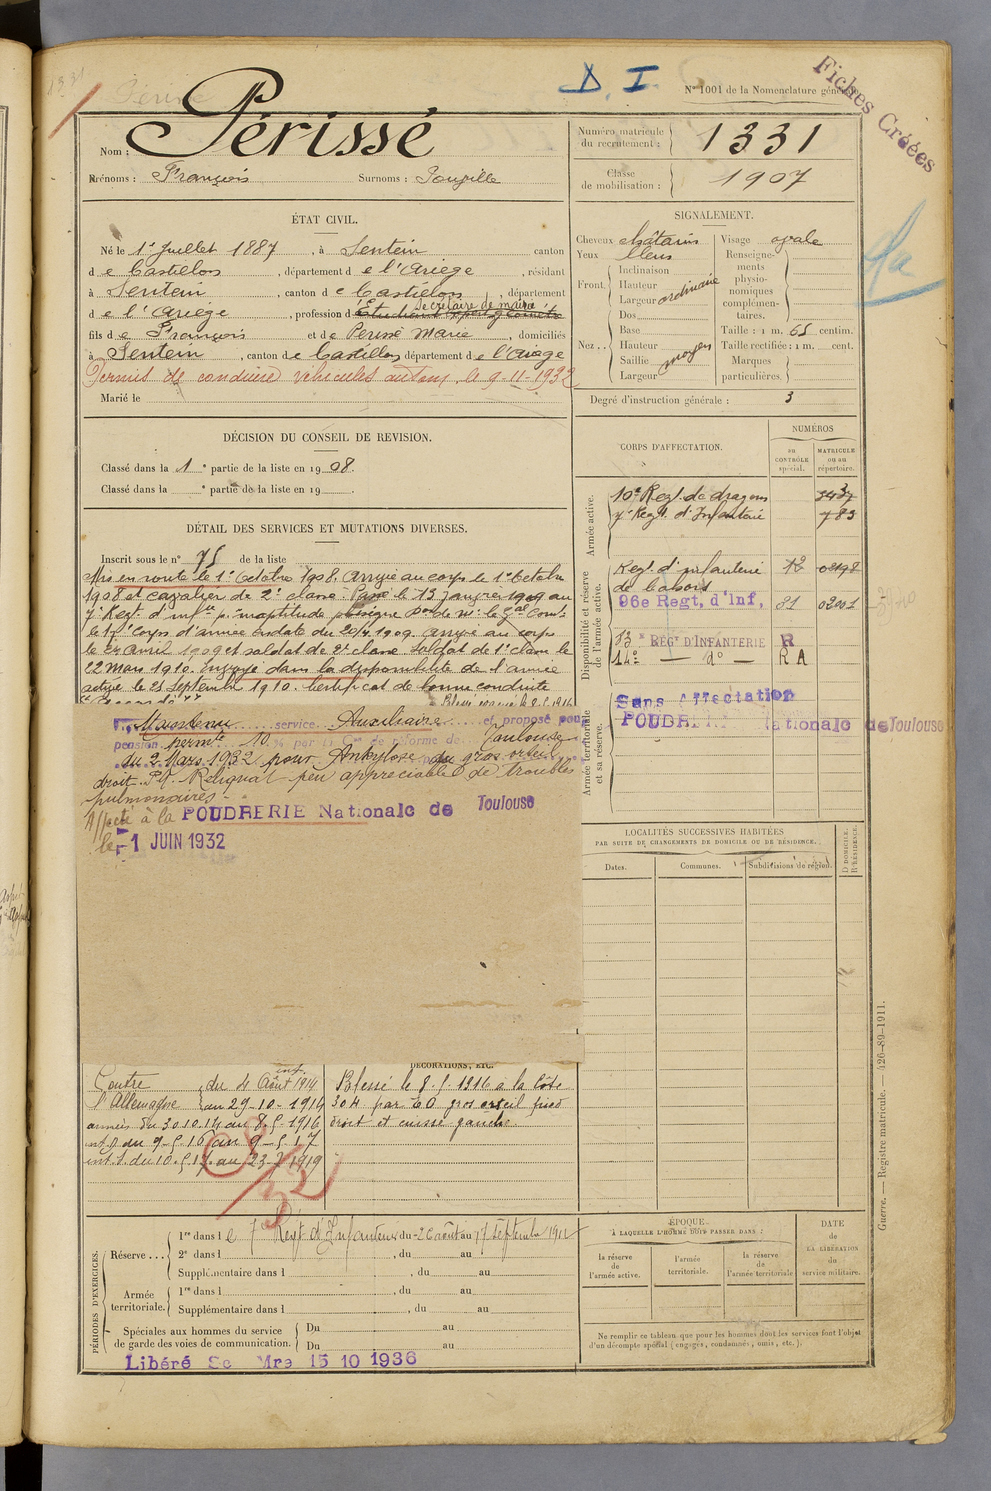 1331
D. I.
N° 1001 de la Nomenclature générale
Fiches Créées
Nom : Périssé
Prénoms : François Surnoms :
Numéro matricule du recrutement : 1331
Classe de mobilisation : 1907
ÉTAT CIVIL.
Né le 1er Juillet 1887, à Sentein canton
de Castillon, département de l'Ariège, résidant
à Sentein, canton de Castillon, département
Secrétaire de mairie
de l'Ariège, profession d'Etudiant expert géomètre
fils de François et de Périssé Marie, domiciliés
à Sentein, canton de Castillon département de l'Ariège
Permis de conduire véhicules autom. le 9-11-1932
Marié le
SIGNALEMENT.
Cheveux châtains Visage ovale
Yeux bleus
Front. Inclinaison
Hauteur
Largeur ordinaire
Nez.. Dos
Base
Hauteur
Saillie moyen
Largeur
Renseignements physionomiques complémentaires.
Taille : 1 m. 65 centim.
Taille rectifiée : 1 m. cent.
Marques particulières.
Degré d'instruction générale : 3
DÉCISION DU CONSEIL DE REVISION.
Classé dans la 1e partie de la liste en 1908.
Classé dans la e partie de la liste en 19 .
DÉTAIL DES SERVICES ET MUTATIONS DIVERSES.
Inscrit sous le n° 75 de la liste
Mis en route le 1er Octobre 1908. Arrivé au corps le 1er Octobre
1908 et cavalier de 2e classe. Passé le 13 Janvier 1909 au
7e Regt. d'infie p. inaptitude physique
le 17e Corps d'armée en date du 20/4 1909. Arrivé au corps
le 24 avril 1909 et soldat de 2e classe. Soldat de 1e classe le
22 Mars 1910. Envoyé dans la disponibilité de l'armée
active le 25 Septembre 1910. Certificat de bonne conduite
"Accordé"
Maintenu service Auxiliaire et proposé pour
pension permte 10 % par la Con de réforme de Toulouse
du 2 Mars 1932 pour Ankylose du gros orteil
droit. Reliquat peu appréciable de troubles
pulmonaires -
Affecté à la POUDRERIE Nationale de Toulouse
le 1 JUIN 1932
CORPS D'AFFECTATION.
NUMÉROS
au CONTRÔLE spécial.
MATRICULE ou au répertoire.
Armée active.
10e Regt. de dragons
7e Regt. d'Infanterie 783
Disponibilité et réserve de l'armée active.
Regt. d'infanterie
de Cahors
96e Regt, d'Inf, 81 02001
83e REGt D'INFANTERIE R
14e — do — R A
Armée territoriale et sa réserve.
Sans Affectation
POUDRERIE Nationale de Toulouse
LOCALITÉS SUCCESSIVES HABITÉES
PAR SUITE DE CHANGEMENTS DE DOMICILE OU DE RÉSIDENCE.
Dates. Communes. Subdivisions de région. D. DOMICILE. R. RÉSIDENCE.
DÉCORATIONS, ETC.
Contre l'Allemagne
int. du 4 Août 1914
au 29-10-1914
armées du 30.10.14 au 8.5.1916
int. du 9-5-16 au 9-5-17
int. du 10.5.17 au 23-2-1919
Blessé le 8.5.1916 à la Côte
304 par EO gros orteil pied
droit et cuisse gauche.
PÉRIODES D'EXERCICES.
Réserve... 1re dans le 7e Regt d'Infanterie du 26 août au 17 Septembre 1912
2e dans l , du au
Supplémentaire dans l , du au
Armée territoriale. 1re dans l , du au
Supplémentaire dans l , du au
Spéciales aux hommes du service de garde des voies de communication. Du au
Du au
Libéré Sce Mre 15 10 1936
ÉPOQUE
À LAQUELLE L'HOMME DOIT PASSER DANS :
la réserve de l'armée active.
l'armée territoriale.
la réserve de l'armée territoriale
DATE de LA LIBÉRATION du service militaire.
Ne remplir ce tableau que pour les hommes dont les services font l'objet
d'un décompte spécial (engagés, condamnés, omis, etc.)
Guerre. — Registre matricule. — 426-89-1911.